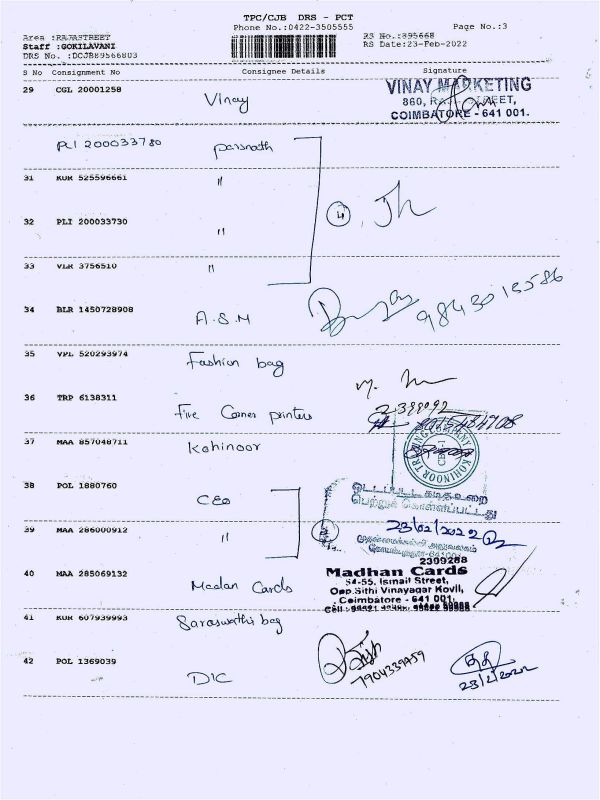 TPC/CJB DRS - PCT
Phone No.:0422-3505555
Page No.:3
Area :RAJASTREET
Staff :GOKILAVANI
DRS No. :DCJB89566803
RS No.:895668
RS Date:23-Feb-2022
S No Consignment No Consignee Details Signature
29 CGL 20001258 Vinay
VINAY MARKETING
860, RAJA STREET,
COIMBATORE - 641 001.
PLI 200033780 parsnath
31 KUR 525596661 "
32 PLI 200033730 "
4
33 VLR 3756510 "
34 BLR 1450728908 A.S.M
35 VPL 520293974 Fashion bag
36 TRP 6138311 Five Corner printers
2399092
37 MAA 857048711 Kohinoor
KOHINOOR TRADING COMPANY
38 POL 1880760 CEO
39 MAA 286000912 "
23/02/2022
2309288
40 MAA 285069132 Madan Cards
Madhan Cards
54-55, Ismail Street,
Opp.Sithi Vinayagar Kovil,
Coimbatore - 641 001.
41 KUR 607939993 Saraswathi bag
7904339959
42 POL 1369039 DIC
23/2/2022